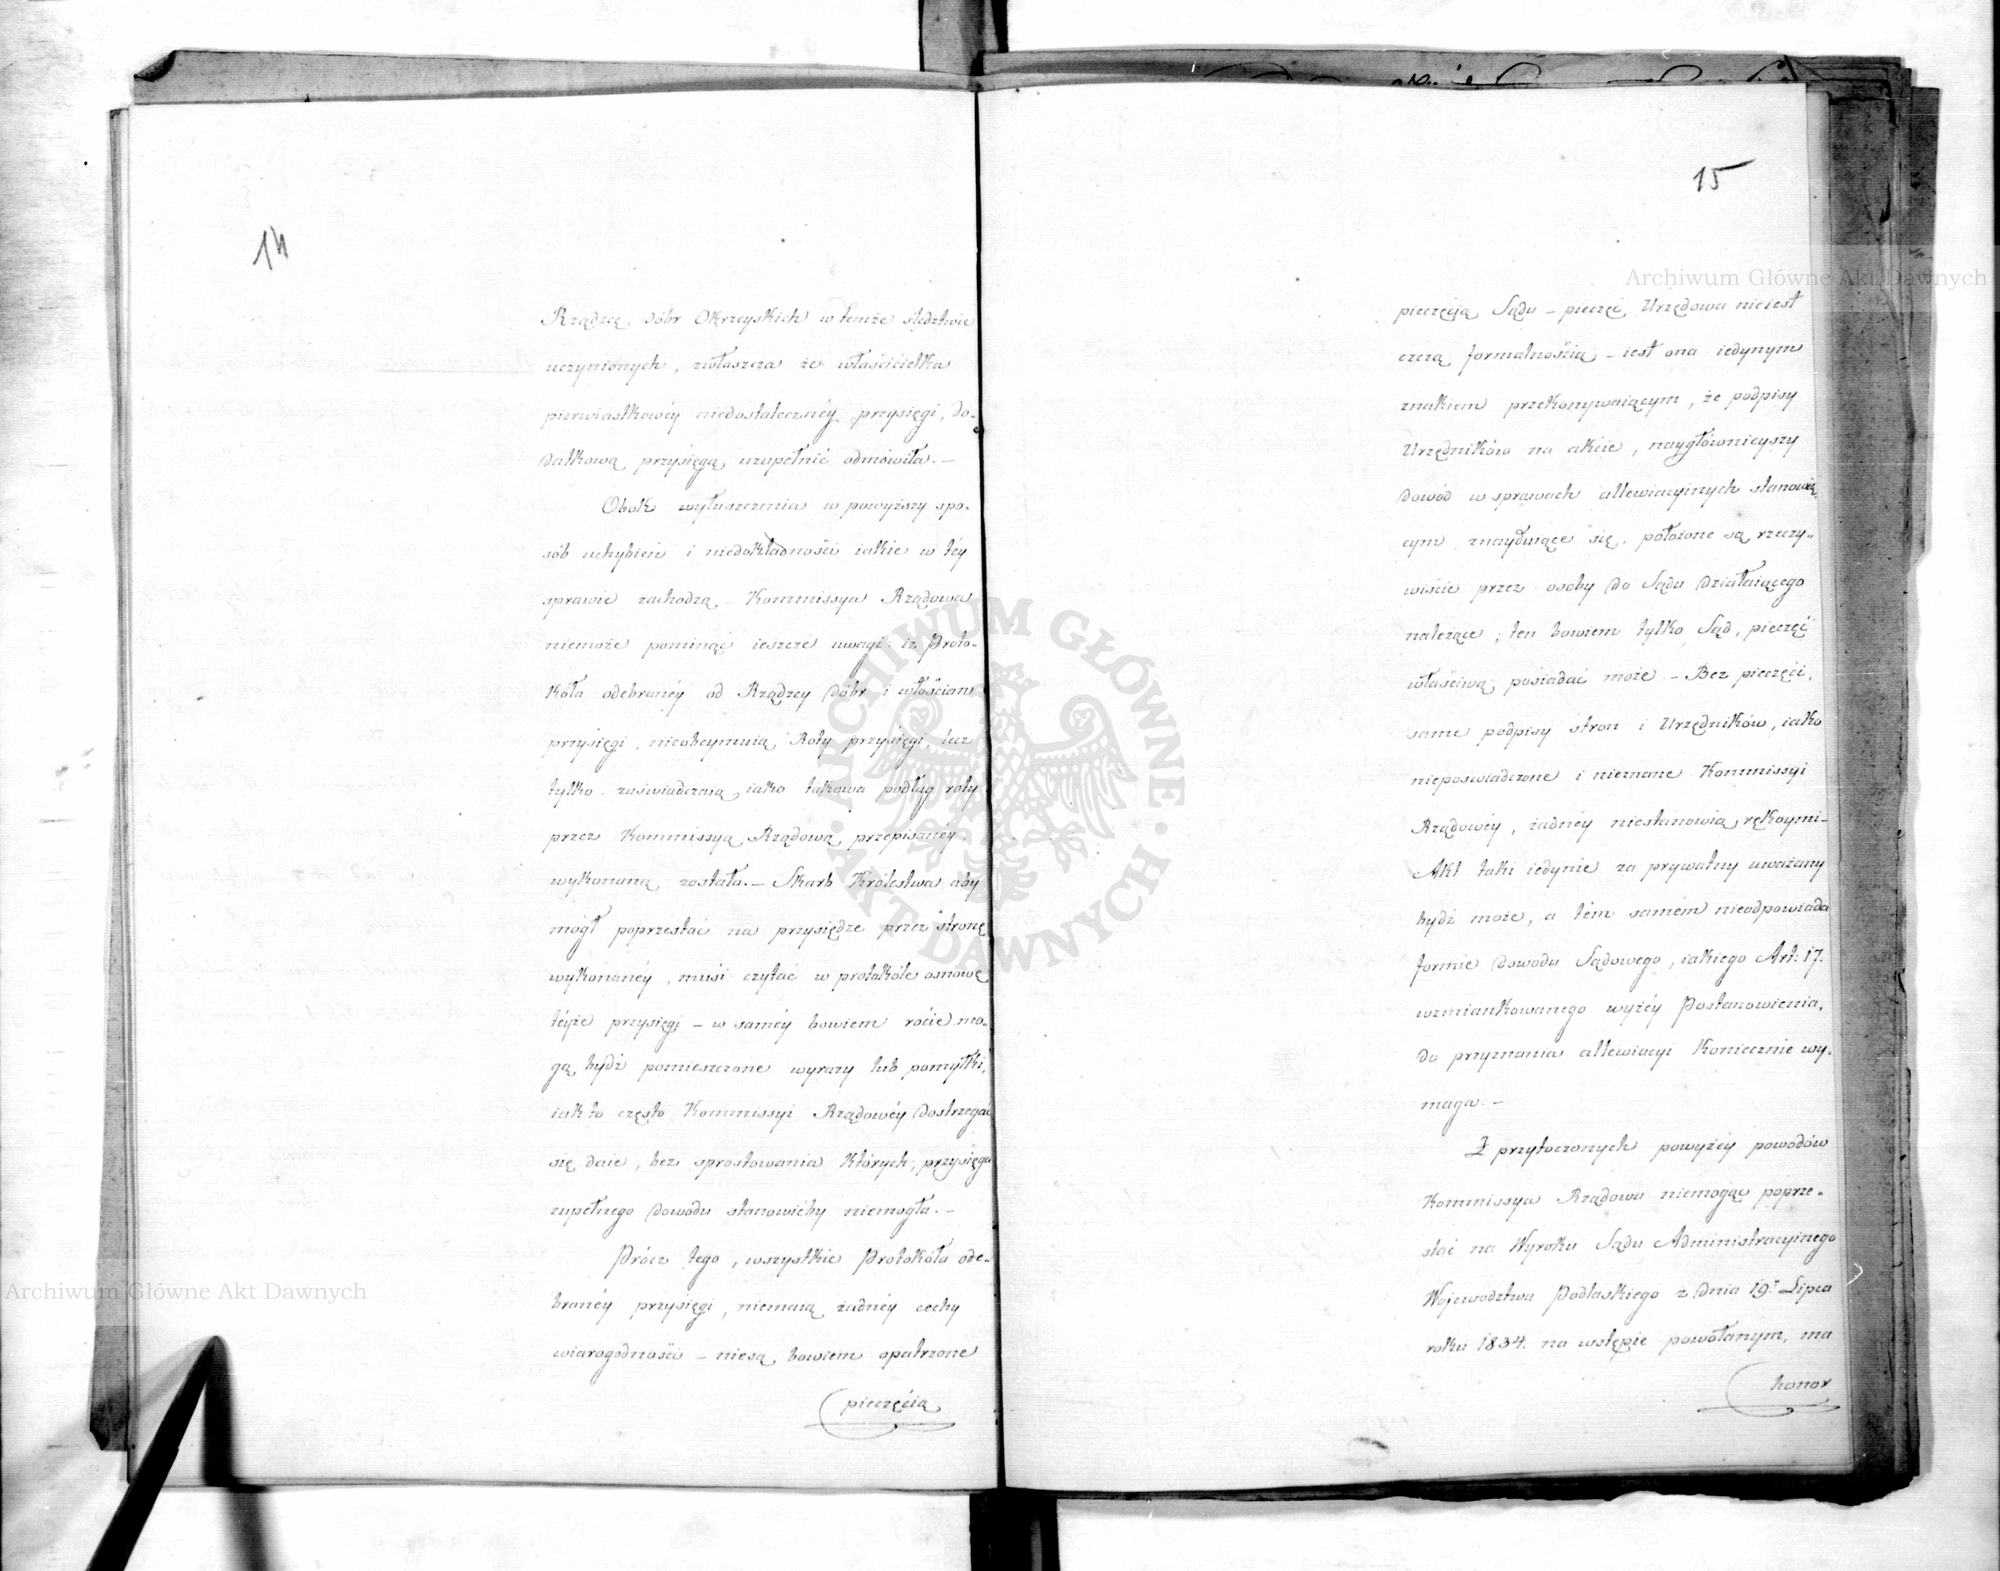 14
Rządzcę dóbr Okrzeyskich w temże śledztwie
uczynionych, zwłaszcza że właścicielka
pierwiastkowéy niedostatecznéy przysięgi, do-
datkową przysięgą uzupełnić odmówiła.–
Obok wyłuszczenia w powyższy spo-
sób uchybień i niedokładności iakie w téy
sprawie zachodzą – Kommissya Rządowa
niemoże pominąć ieszcze uwagi: iż Proto-
kóła odebranéy od Rządzcy dóbr i włościan
przysięgi, nieobeymuią Roty przysięgi, lecz
tylko zaświadczaią iako takowa podług roty
przez Kommissyą Rządową przepisanéy
wykonaną została.– Skarb Królestwa aby
mógł poprzestać na przysiędze przez stronę
wykonanéy, musi czytać w protokóle osnowę
téyże przysięgi – w saméy bowiem rocie mo-
gą bydź pomieszczone wyrazy lub pomyłki,
iak to często Kommissyi Rządowéy dostrzegać
się daie, bez sprostowania których, przysięga
zupełnego dowodu stanowićby niemogła.–
Prócz tego, wszystkie Protokóła ode-
branéy przysięgi, niemaią żadnéy cechy
wiarogodności – niesą bowiem opatrzone
pieczęcią
15
pieczęcią Sądu – pieczęć Urzędowa nieiest
czczą formalnością – iest ona iedynym
znakiem przekonywaiącym, że podpisy
Urzędników na akcie, naygłównieyszy
dowód w sprawach allewiacyinych stanowią-
cym znayduiące się, położone są rzeczy-
wiście przez osoby do Sądu działaiącego
należące; ten bowiem tylko Sąd, pieczęć
właściwą posiadać może – Bez pieczęci,
same podpisy stron i Urzędników, iako
nieposwiadczone i nieznane Kommissyi
Rządowéy, żadnéy niestanowią rękoymi–
Akt taki iedynie za prywatny uważany
bydź może, a tém samém nieodpowiada
formie dowodu Sądowego, iakiego Art: 17.
wzmiankowanego wyżéy Postanowienia,
do przyznania allewiacyi koniecznie wy-
maga.–
Z przytoczonych powyżéy powodów
Kommissya Rządowa niemogąc poprze-
stać na Wyroku Sądu Administracyinego
Województwa Podlaskiego z dnia 19. Lipca
roku 1834. na wstępie powołanym, ma
honor
Archiwum Główne Akt Dawnych
Archiwum Główne Akt Dawnych
ARCHIWUM GŁÓWNE · AKT DAWNYCH ·